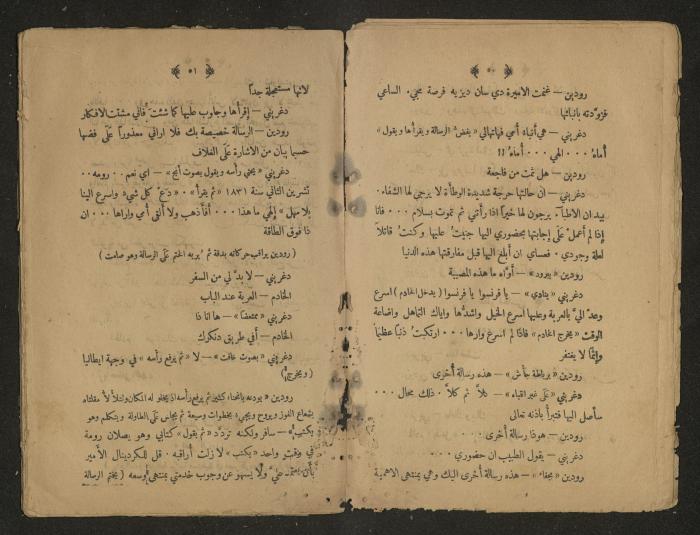 ﴿ ٥٠ ﴾
رودين — غنمت الاميرة دي سان ديزيه فرصة مجيء الساعي
فزوّدته بانبائها
دغريني — هي أنباء أمي فهاتها لي «يفضّ الرسالة ويقرأها ويقول»
أماهُ ٠٠٠ الهي ٠٠٠ أماهُ !!
رودين — هل تمت من فاجعة
دغريني — ان حالتها حرجة شديدة الوطأة لا يرجى لها الشفاء.
بيد ان الاطباء يرجون لها خيرًا اذا رأتني ثم تموت بسلام ٠٠٠ فانا
إذا لم أعمل على إجابتها بحضوري اليها جنيت عليها وكنت قاتلاً
لعلة وجودي. فعساي ان أبلغ اليها قبل مفارقتها هذه الدنيا
رودين «ببرود» — أوّاه ما هذه المصيبة
دغريني «ينادي» — يا فرنسوا يا فرنسوا (يدخل الخادم) اسرع
وعد اليَّ بالعربة وعليها أسرع الخيل واشدّها واياك التماهل واضاعة
الوقت «يخرج الخادم» فاذا لم اسرع وارها ٠٠٠ ارتكبت ذنبًا عظيمًا
وإثمًا لا يغتفر
رودين «برباطة جأش» — هذه رسالة أخرى
دغريني «على غير انتباه» — كلاَّ ثم كلاَّ. ذلك محال ٠٠٠
سأصل اليها فتبرأ باذنه تعالى
رودين — هوذا رسالة أخرى ٠٠٠
دغريني — يقول الطبيب ان حضوري ٠٠٠
رودين «بجفاء» — هذه رسالة أخرى اليك وهي بمنتهى الاهمية
﴿ ٥١ ﴾
لانها مستعجلة جدًّا
دغريني — إقرأها وجاوب عليها كما شئت فاني مشتت الافكار
رودين — الرسالة خصيصة بك فلا اراني معذورًا على فضها
حسبما يبان من الاشارة على الغلاف
دغريني «يحني رأسه ويقول بصوت أبح» — اي نعم ٠٠ رومه ٠٠
تشرين الثاني سنة ١٨٣١ «ثم يقرأ» ٠ «دع كل شيء واسرع الينا
بلا مهل» إلهي ما هذا ٠٠٠ أفأذهب ولا ألقى أمي واراها ٠٠٠ ان
ذا فوق الطاقة
(رودين يراقب حركاته بدقة ثم يريه الختم على الرسالة وهو صامت)
دغريني — لا بدَّ لي من السفر
الخادم — العربة عند الباب
دغريني «ممتعضًا» — ها انا ذا
الخادم — أفي طريق دنكرك
دغريني «بصوت خافت» — لا «ثم يرفع رأسه» في وجهة ايطاليا
(ويخرج)
رودين «يودعه بانحناء كثير ثم يرفع رأسه اذ يخلو له المكان وتتلألأ مقلتاه
بشعاع الفوز ويروح ويجيء بخطوات وسيعة ثم يجلس على الطاولة ويتكلم وهو
يكتب» — سافر ولكنه تردّد «ثم يقول» كتابي وهو يصلان رومة
في وقت واحد «يكتب» لا زلت أراقبه. قل للكردينال الامير
بأن يعتمد عليَّ ولا يسهو عن وجوب خدمتي بمنتهى وسعه (يختم الرسالة